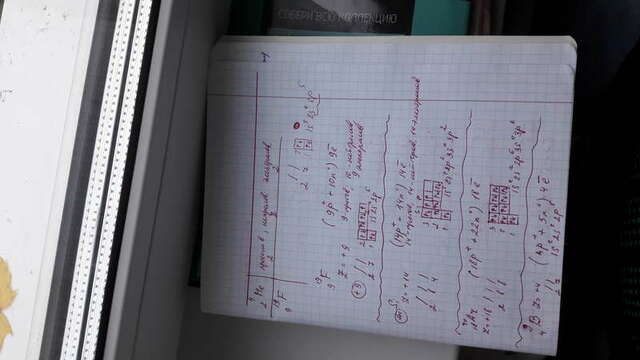 4 He протонов, нейтронов, электронов
2 2 2 2
19 F
9
2 7 1s² 2s² 2p⁵
19 F (9p⁺ + 10n°) 9ē
9 Z = +9 9-протон, 10-нейтронов
9 электронов
+9
2 7 1s² 2s² 2p⁵
Si (14p⁺ + 14n°) 14ē
Z = +14 14-протонов, 14-нейтронов, 14-электронов
2 8 4 1s² 2s² 2p⁶ 3s² 3p²
40 Ar (18p⁺ + 22n°) 18ē
Z = +18
2 8 8 1s² 2s² 2p⁶ 3s² 3p
9 B Z = +4 (4p⁺ + 5n°) 4ē
4 2 2 1s² 2s² 2p